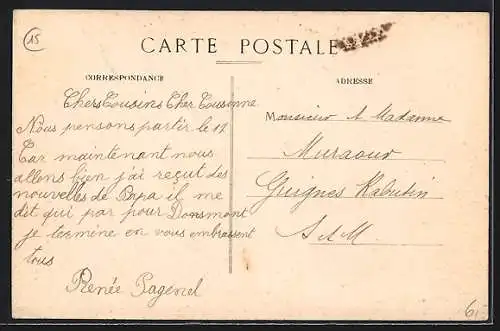 15
CARTE POSTALE
CORRESPONDANCE
ADRESSE
Chers Cousins Cher Cousinne
Nous pensons partir le 12
Car maintenant nous
allens bien j'ai reçut des
nouvelles de Papa il me
dit qui par pour Donsmont
je termine en vous embrassent
tous
Renée Pagenel
Monsieur A Madamme
Muraour
Guignes Rabutin
S. A M.
6,